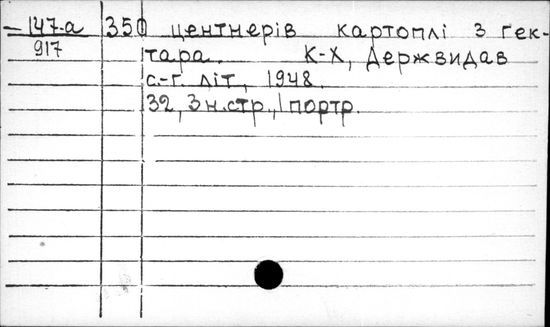 147-а 350 центнерів картоплі з гек-
917 тара. К-Х, Держвидав
с.-г. літ, 1948.
32, 3 н.стр., 1 портр.